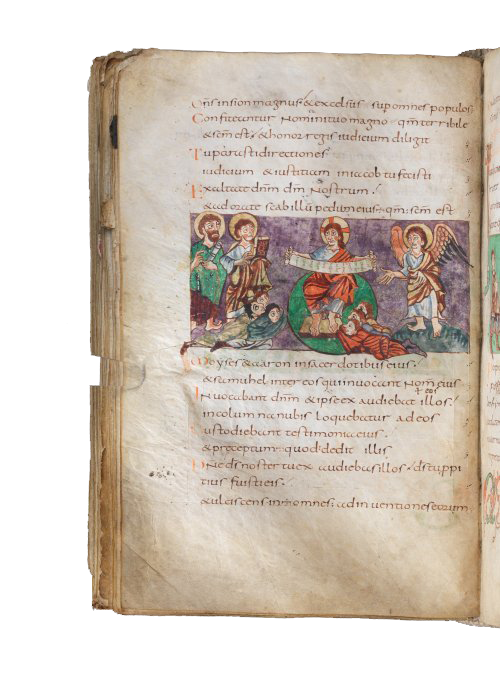 Dns insion magnus & excelsus sup omnes populos
Confiteantur Nomini tuo magno qm terribile
& scm est & honor regis iudicium diligit
Tu parasti directiones
iudicium & iustitiam in iacob tu fecisti
Exaltate dnm dm Nostrum
& adorate scabillu pedum eius qm scm est
Moyses & aaron in sacerdotibus eius
& samuhel inter eos qui inuocant Nomen eius
INuocabant dnm & ipse exaudiebat illos
eos
in columna nubis loquebatur ad eos
Custodiebant testimonia eius
& preceptum quod dedit illis
Dne ds noster tu exaudiebas illos ds tu ppi
tius fuisti eis
& ulciscens in omnes adinuentiones eorum